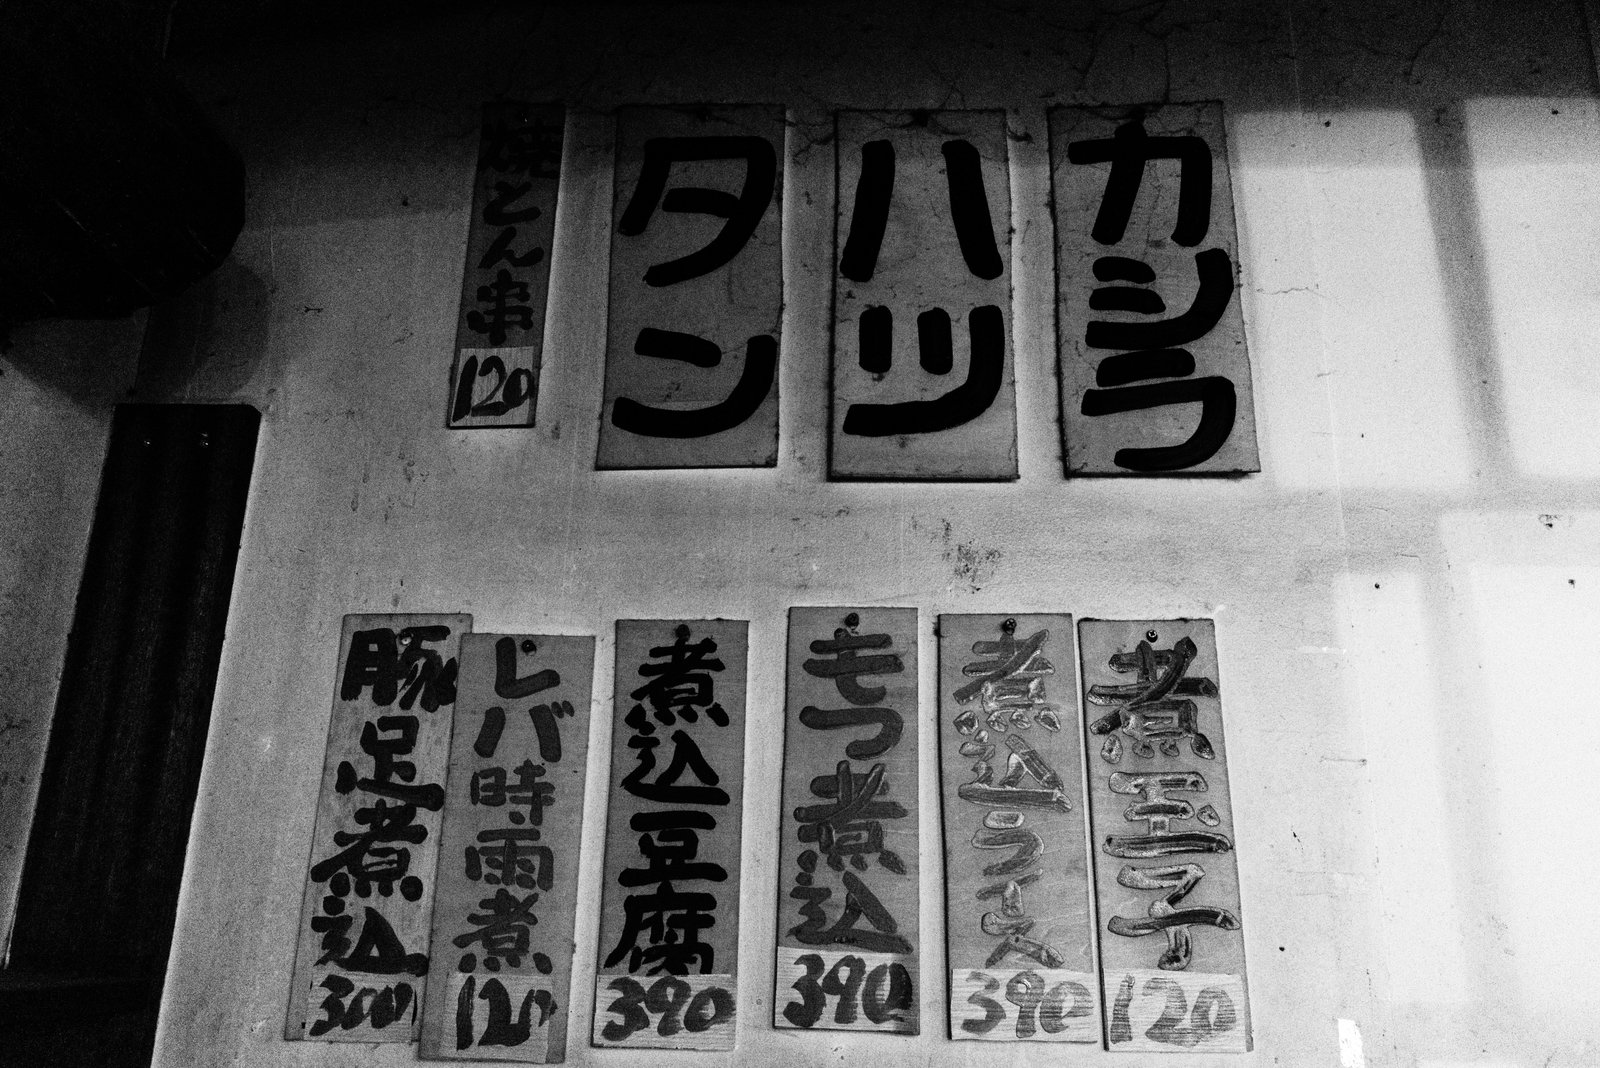 カシラ
ハツ
タン
焼とん串
120
煮玉子
120
煮込ライス
390
もつ煮込
390
煮込豆腐
390
レバ時雨煮
120
豚足煮込
300